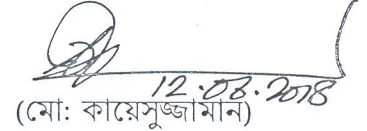 12.08.2018
(মো: কায়েসুজ্জামান)